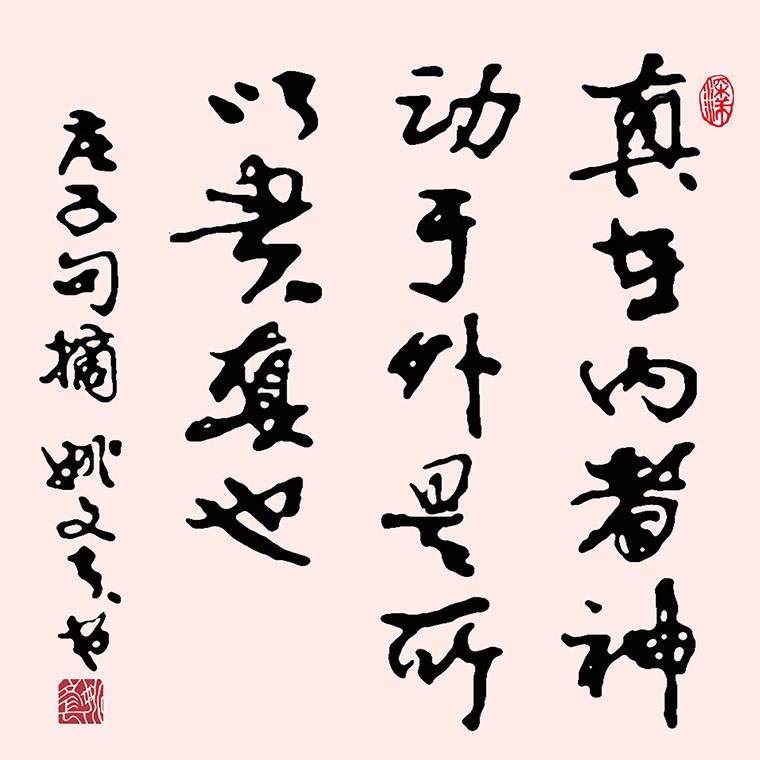 真在内者神
动于外是所
以贵真也
庄子句摘 姚文 书